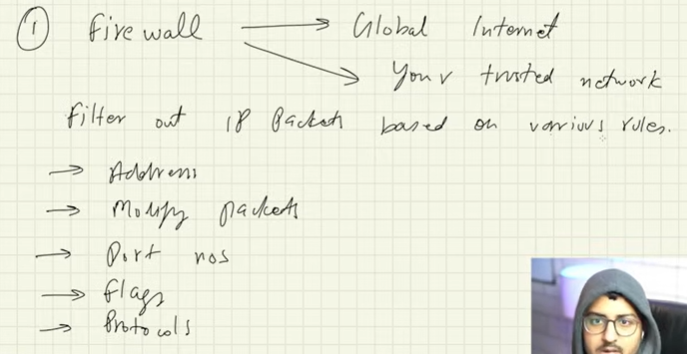 ① Firewall → Global Internet
→ Your trusted network
Filter out IP Packets based on various rules.
→ Address
→ Modify packets
→ Port nos
→ Flags
→ Protocols